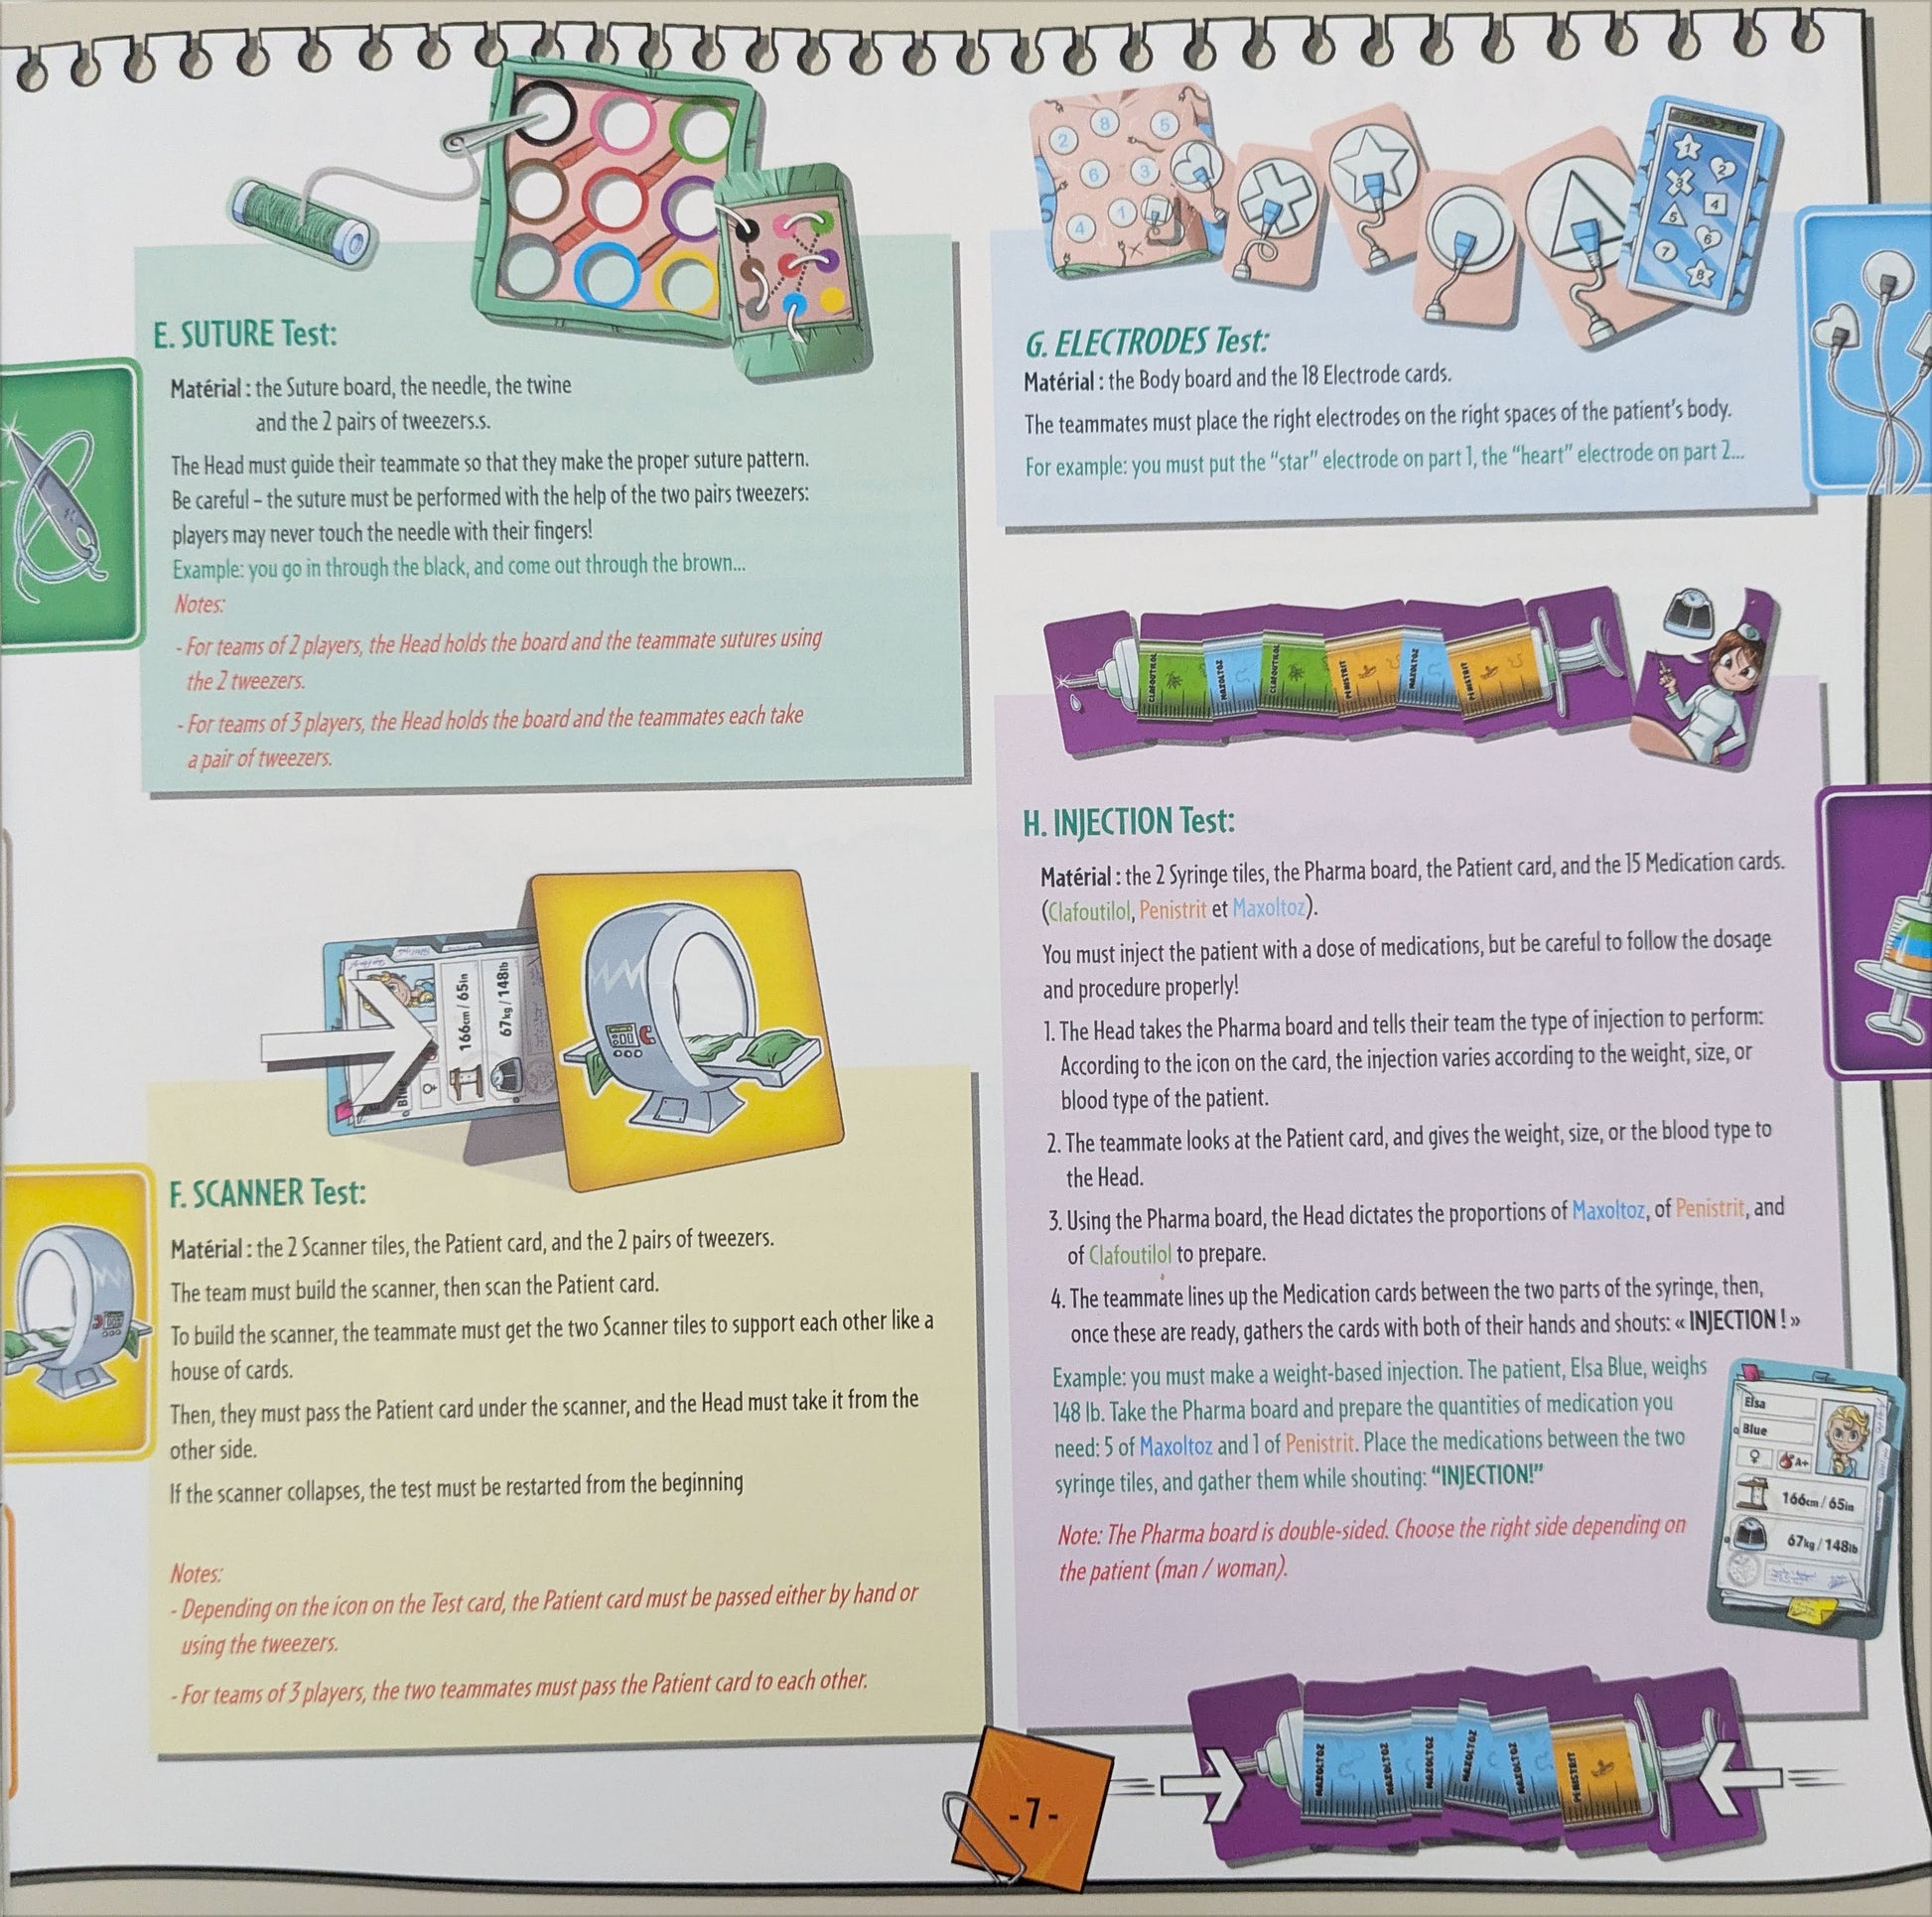 E. SUTURE Test:
Matérial : the Suture board, the needle, the twine
and the 2 pairs of tweezers.s.
The Head must guide their teammate so that they make the proper suture pattern.
Be careful – the suture must be performed with the help of the two pairs tweezers:
players may never touch the needle with their fingers!
Example: you go in through the black, and come out through the brown...
Notes:
- For teams of 2 players, the Head holds the board and the teammate sutures using
the 2 tweezers.
- For teams of 3 players, the Head holds the board and the teammates each take
a pair of tweezers.
166cm / 65in
67kg / 148lb
F. SCANNER Test:
Matérial : the 2 Scanner tiles, the Patient card, and the 2 pairs of tweezers.
The team must build the scanner, then scan the Patient card.
To build the scanner, the teammate must get the two Scanner tiles to support each other like a
house of cards.
Then, they must pass the Patient card under the scanner, and the Head must take it from the
other side.
If the scanner collapses, the test must be restarted from the beginning
Notes:
- Depending on the icon on the Test card, the Patient card must be passed either by hand or
using the tweezers.
- For teams of 3 players, the two teammates must pass the Patient card to each other.
2 8 5
6 3
4 1
1
2
3
4
5
6
7
8
G. ELECTRODES Test:
Matérial : the Body board and the 18 Electrode cards.
The teammates must place the right electrodes on the right spaces of the patient's body.
For example: you must put the "star" electrode on part 1, the "heart" electrode on part 2...
CLAFOUTILOL
MAXOLTOZ
CLAFOUTILOL
PENISTRIT
MAXOLTOZ
PENISTRIT
H. INJECTION Test:
Matérial : the 2 Syringe tiles, the Pharma board, the Patient card, and the 15 Medication cards.
(Clafoutilol, Penistrit et Maxoltoz).
You must inject the patient with a dose of medications, but be careful to follow the dosage
and procedure properly!
1. The Head takes the Pharma board and tells their team the type of injection to perform:
According to the icon on the card, the injection varies according to the weight, size, or
blood type of the patient.
2. The teammate looks at the Patient card, and gives the weight, size, or the blood type to
the Head.
3. Using the Pharma board, the Head dictates the proportions of Maxoltoz, of Penistrit, and
of Clafoutilol to prepare.
4. The teammate lines up the Medication cards between the two parts of the syringe, then,
once these are ready, gathers the cards with both of their hands and shouts: « INJECTION ! »
Example: you must make a weight-based injection. The patient, Elsa Blue, weighs
148 lb. Take the Pharma board and prepare the quantities of medication you
need: 5 of Maxoltoz and 1 of Penistrit. Place the medications between the two
syringe tiles, and gather them while shouting: "INJECTION!"
Note: The Pharma board is double-sided. Choose the right side depending on
the patient (man / woman).
Elsa
Blue
A+
166cm / 65in
67kg / 148lb
MAXOLTOZ
MAXOLTOZ
MAXOLTOZ
MAXOLTOZ
MAXOLTOZ
PENISTRIT
-7-